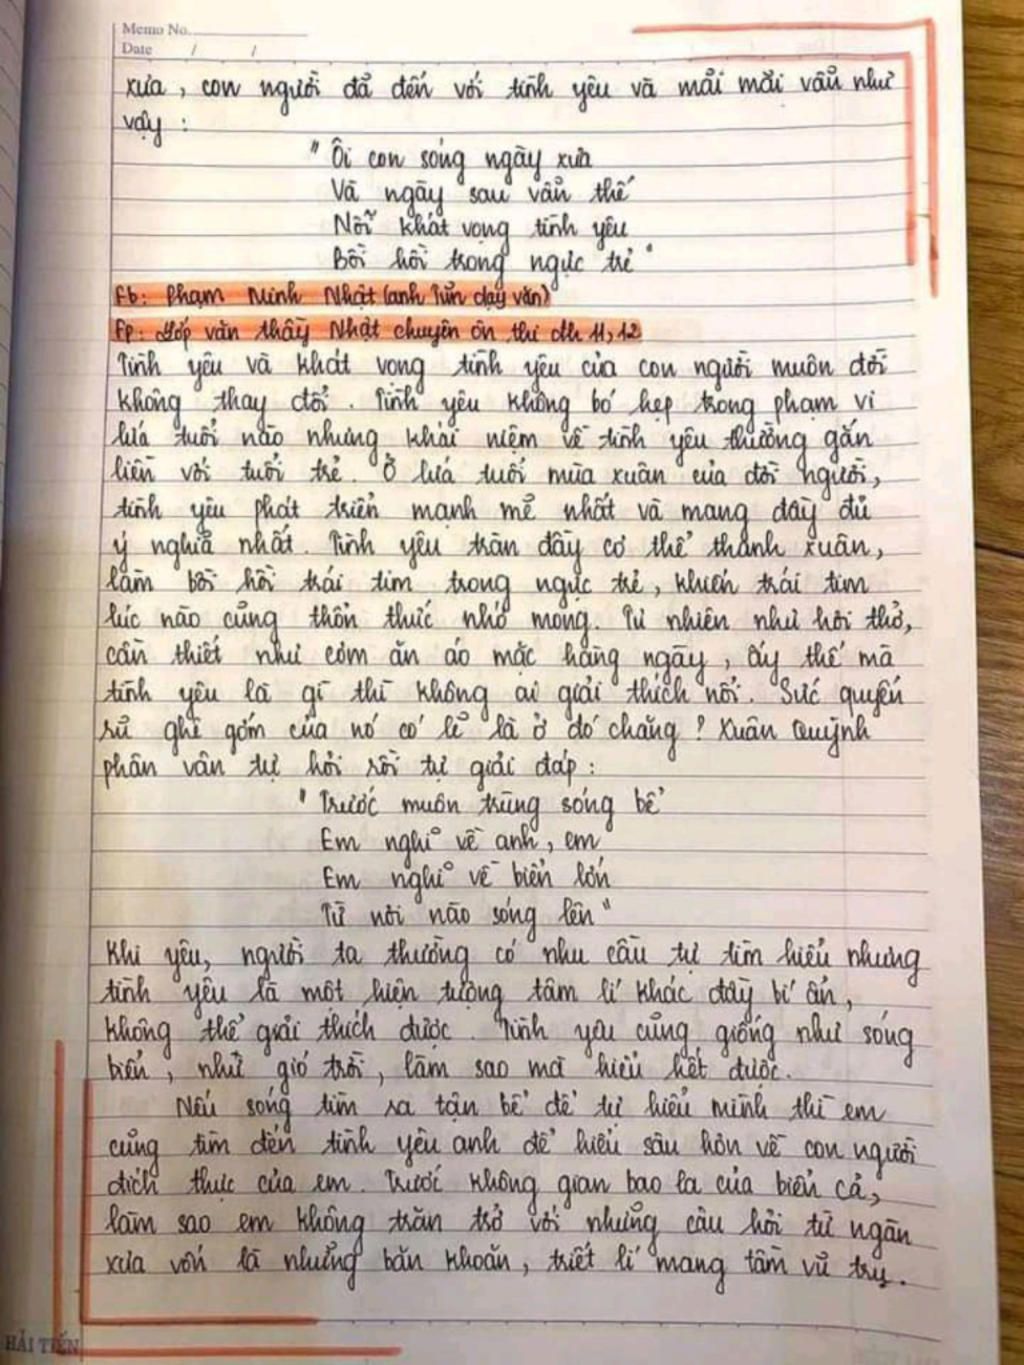 Memo No.
Date / /
xưa, con người đã đến với tình yêu và mãi mãi vẫn như
vậy :
"Ôi con sóng ngày xưa
Và ngày sau vẫn thế
Nỗi khát vọng tình yêu
Bồi hồi trong ngực trẻ"
Fb: Phạm Minh Nhật (anh Tũn dạy văn)
Fp: Lớp văn thầy Nhật chuyên ôn thi đh 11,12
Tình yêu và khát vọng tình yêu của con người muôn đời
không thay đổi. Tình yêu không bó hẹp trong phạm vi
lứa tuổi nào nhưng khái niệm về tình yêu thường gắn
liền với tuổi trẻ. Ở lứa tuổi mùa xuân của đời người,
tình yêu phát triển mạnh mẽ nhất và mang đầy đủ
ý nghĩa nhất. Tình yêu tràn đầy cơ thể thanh xuân,
làm bồi hồi trái tim trong ngực trẻ, khiến trái tim
lúc nào cũng thổn thức nhớ mong. Tự nhiên như hơi thở,
cần thiết như cơm ăn áo mặc hàng ngày, ấy thế mà
tình yêu là gì thì không ai giải thích nổi. Sức quyến
rũ ghê gớm của nó có lẽ là ở đó chăng? Xuân Quỳnh
phân vân tự hỏi rồi tự giải đáp :
"Trước muôn trùng sóng bể
Em nghĩ về anh, em
Em nghĩ về biển lớn
Từ nơi nào sóng lên"
Khi yêu, người ta thường có nhu cầu tự tìm hiểu nhưng
tình yêu là một hiện tượng tâm lí khác đầy bí ẩn,
không thể giải thích được. Tình yêu cũng giống như sóng
biển, như gió trời, làm sao mà hiểu hết được.
Nếu sóng tìm ra tận bể để tự hiểu mình thì em
cũng tìm đến tình yêu anh để hiểu sâu hơn về con người
đích thực của em. Trước không gian bao la của biển cả,
làm sao em không trăn trở với những câu hỏi từ ngàn
xưa vốn là những băn khoăn, triết lí mang tầm vũ trụ.
HẢI TIẾN